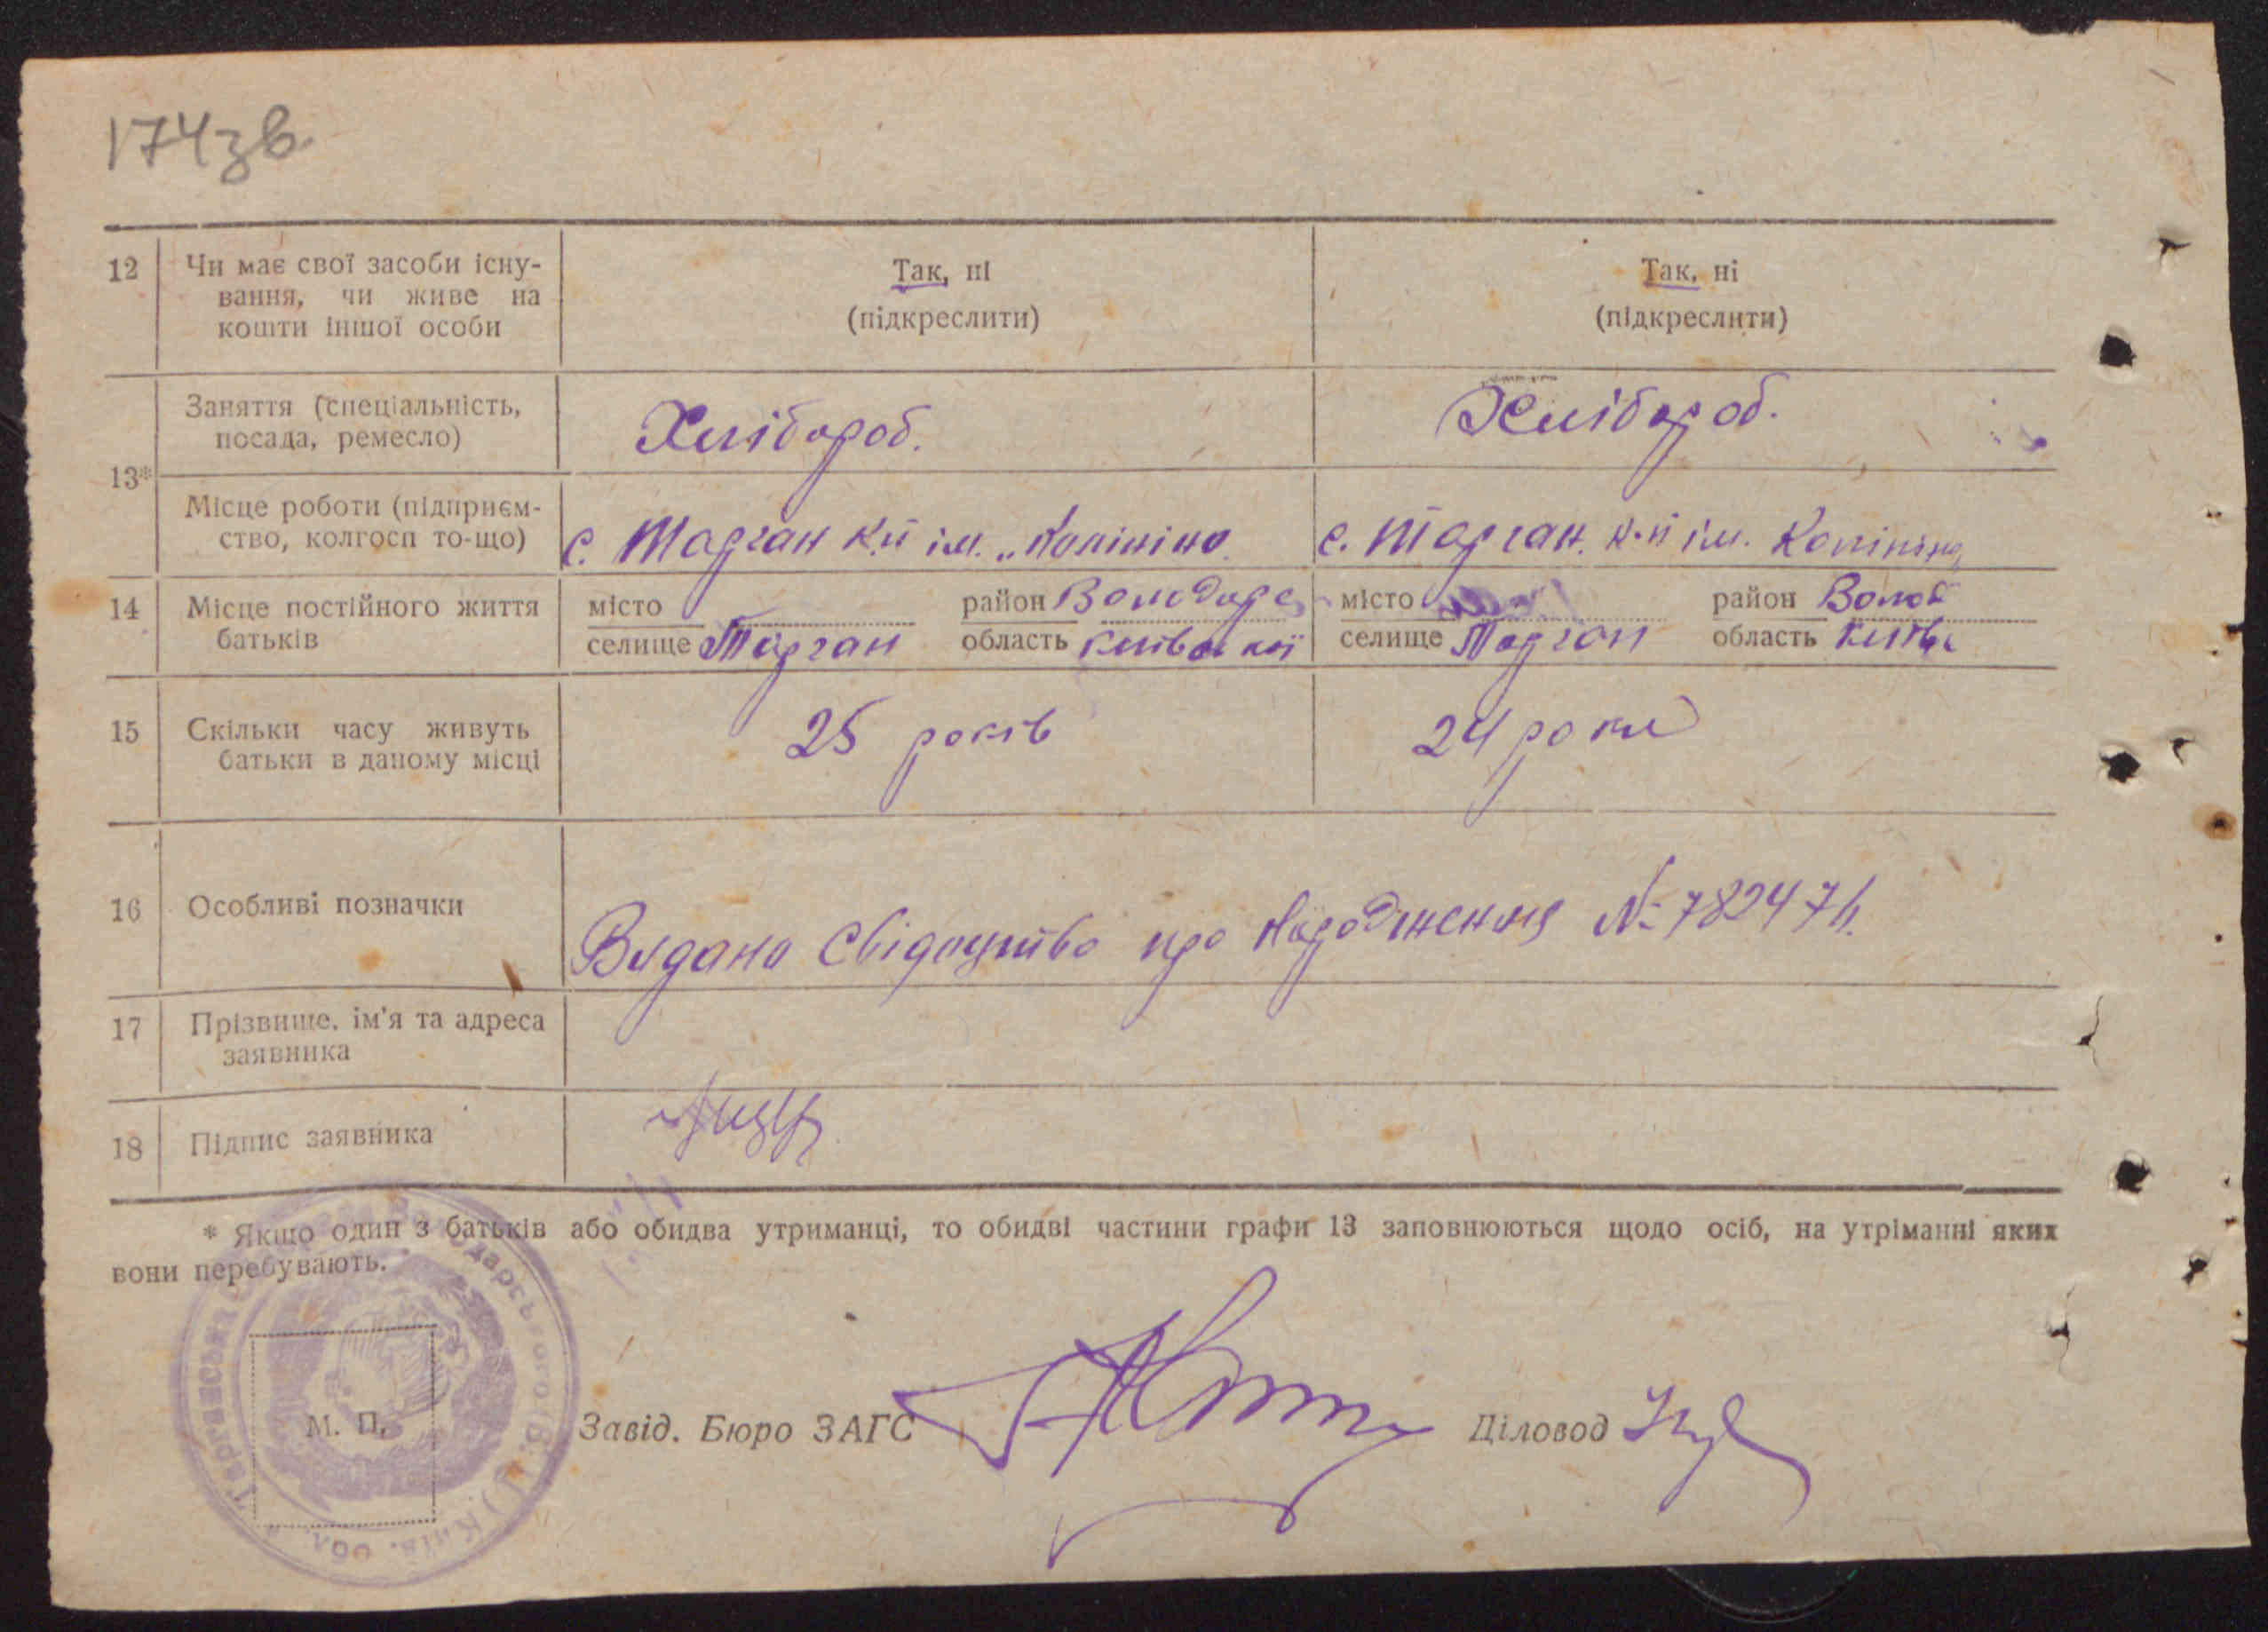 174зв.
12 Чи має свої засоби існу-
вання, чи живе на
кошти іншої особи
Так, ні
(підкреслити)
Так, ні
(підкреслити)
13*
Заняття (спеціальність,
посада, ремесло)
Хлібороб.
Хлібороб.
Місце роботи (підприєм-
ство, колгосп то-що)
с. Тарган к.п ім. „Калініна
с. Тарган. к-п ім. Калініна
14 Місце постійного життя
батьків
місто район Володарс
селище Тарган область Київської
місто район Волод
селище Тарган область Київс
15 Скільки часу живуть
батьки в даному місці
25 років
24 роки
16 Особливі позначки
Видано Свідоцтво про народження №
17 Прізвище, ім'я та адреса
заявника
18 Підпис заявника
* Якщо один з батьків або обидва утриманці, то обидві частини графи 13 заповнюються щодо осіб, на утріманні яких
вони перебувають.
М. П.
Завід. Бюро ЗАГС
Діловод